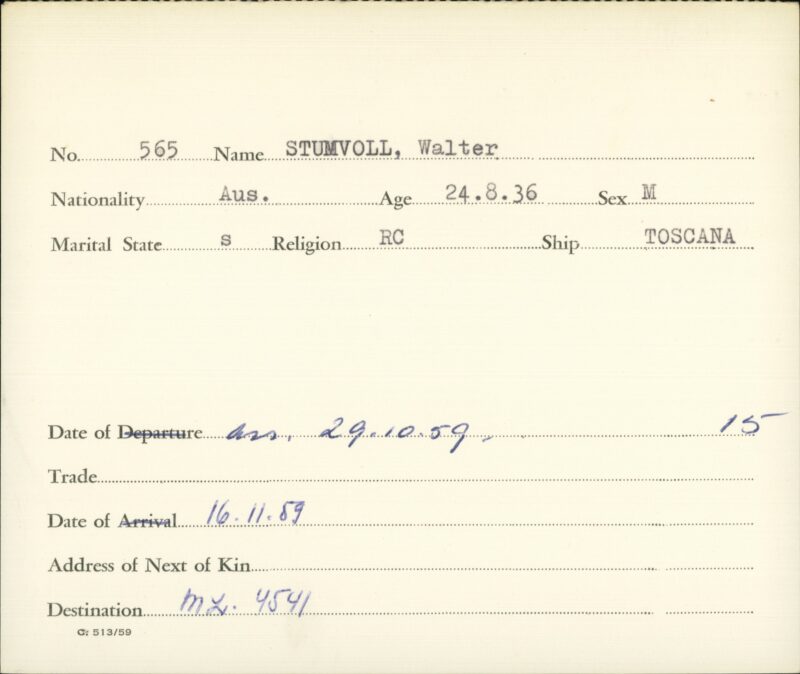 No. 565 Name STUMVOLL, Walter
Nationality Aus. Age 24.8.36 Sex M
Marital State s Religion RC Ship TOSCANA
Date of Departure arr. 29.10.59. 15
Trade
Date of Arrival 16.11.59
Address of Next of Kin
Destination ML. 4541
C. 513/59